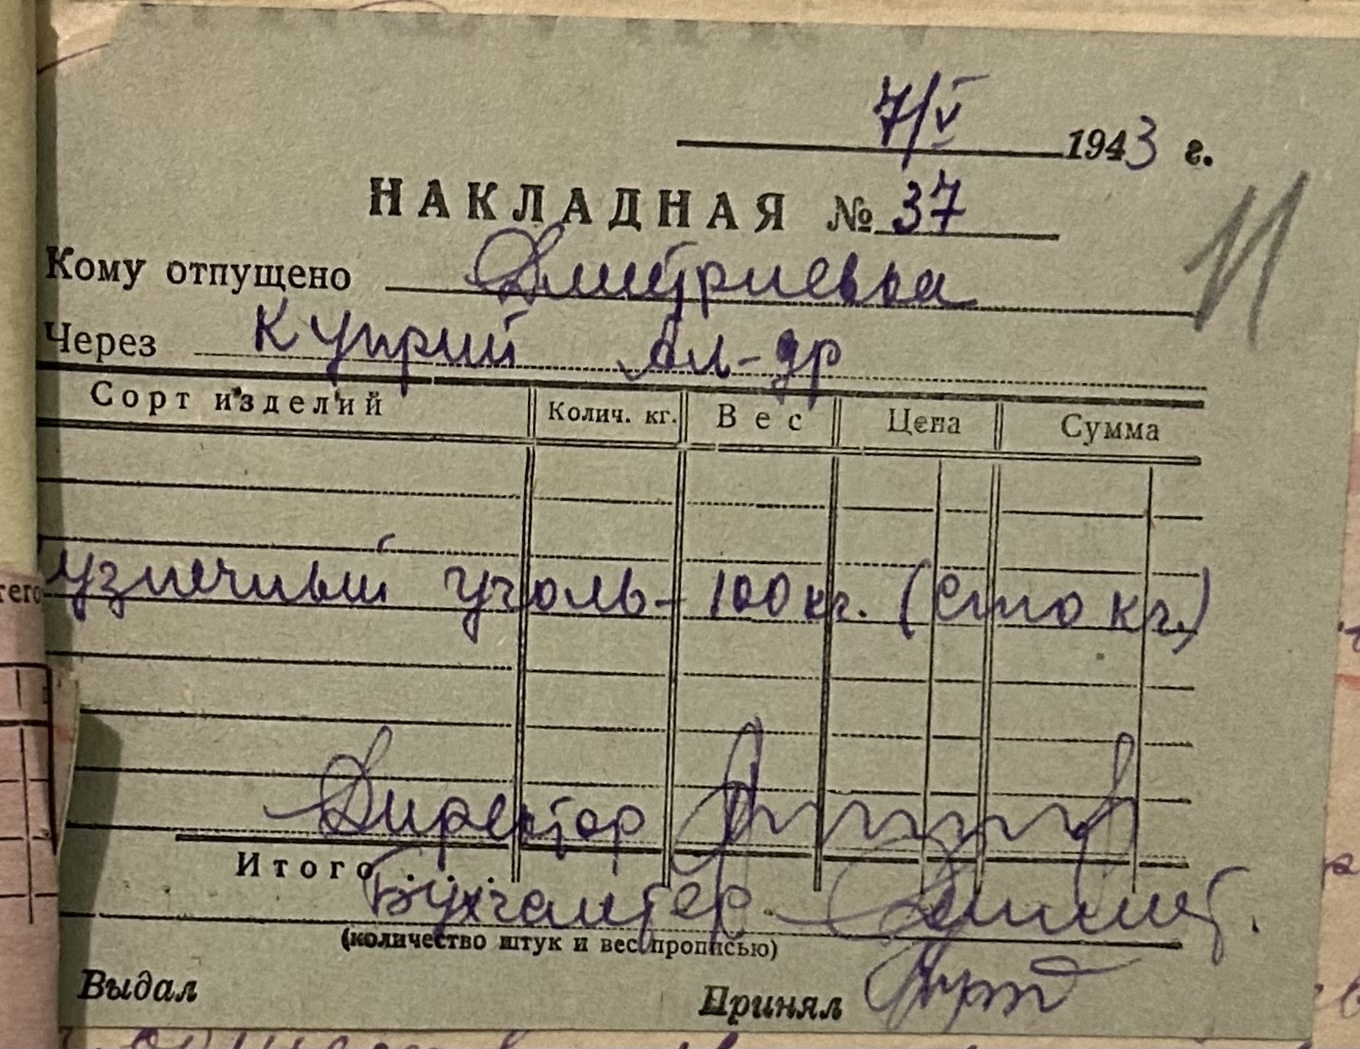 7/V 1943 г.
НАКЛАДНАЯ № 37
Кому отпущено Дмитриевка
Через Куприй Ал-др
Сорт изделий Колич. кг. Вес Цена Сумма
узнечный уголь - 100 кг. (сто кг.)
Директор
Итого
Бухгалтер
(количество штук и вес прописью)
Выдал Принял